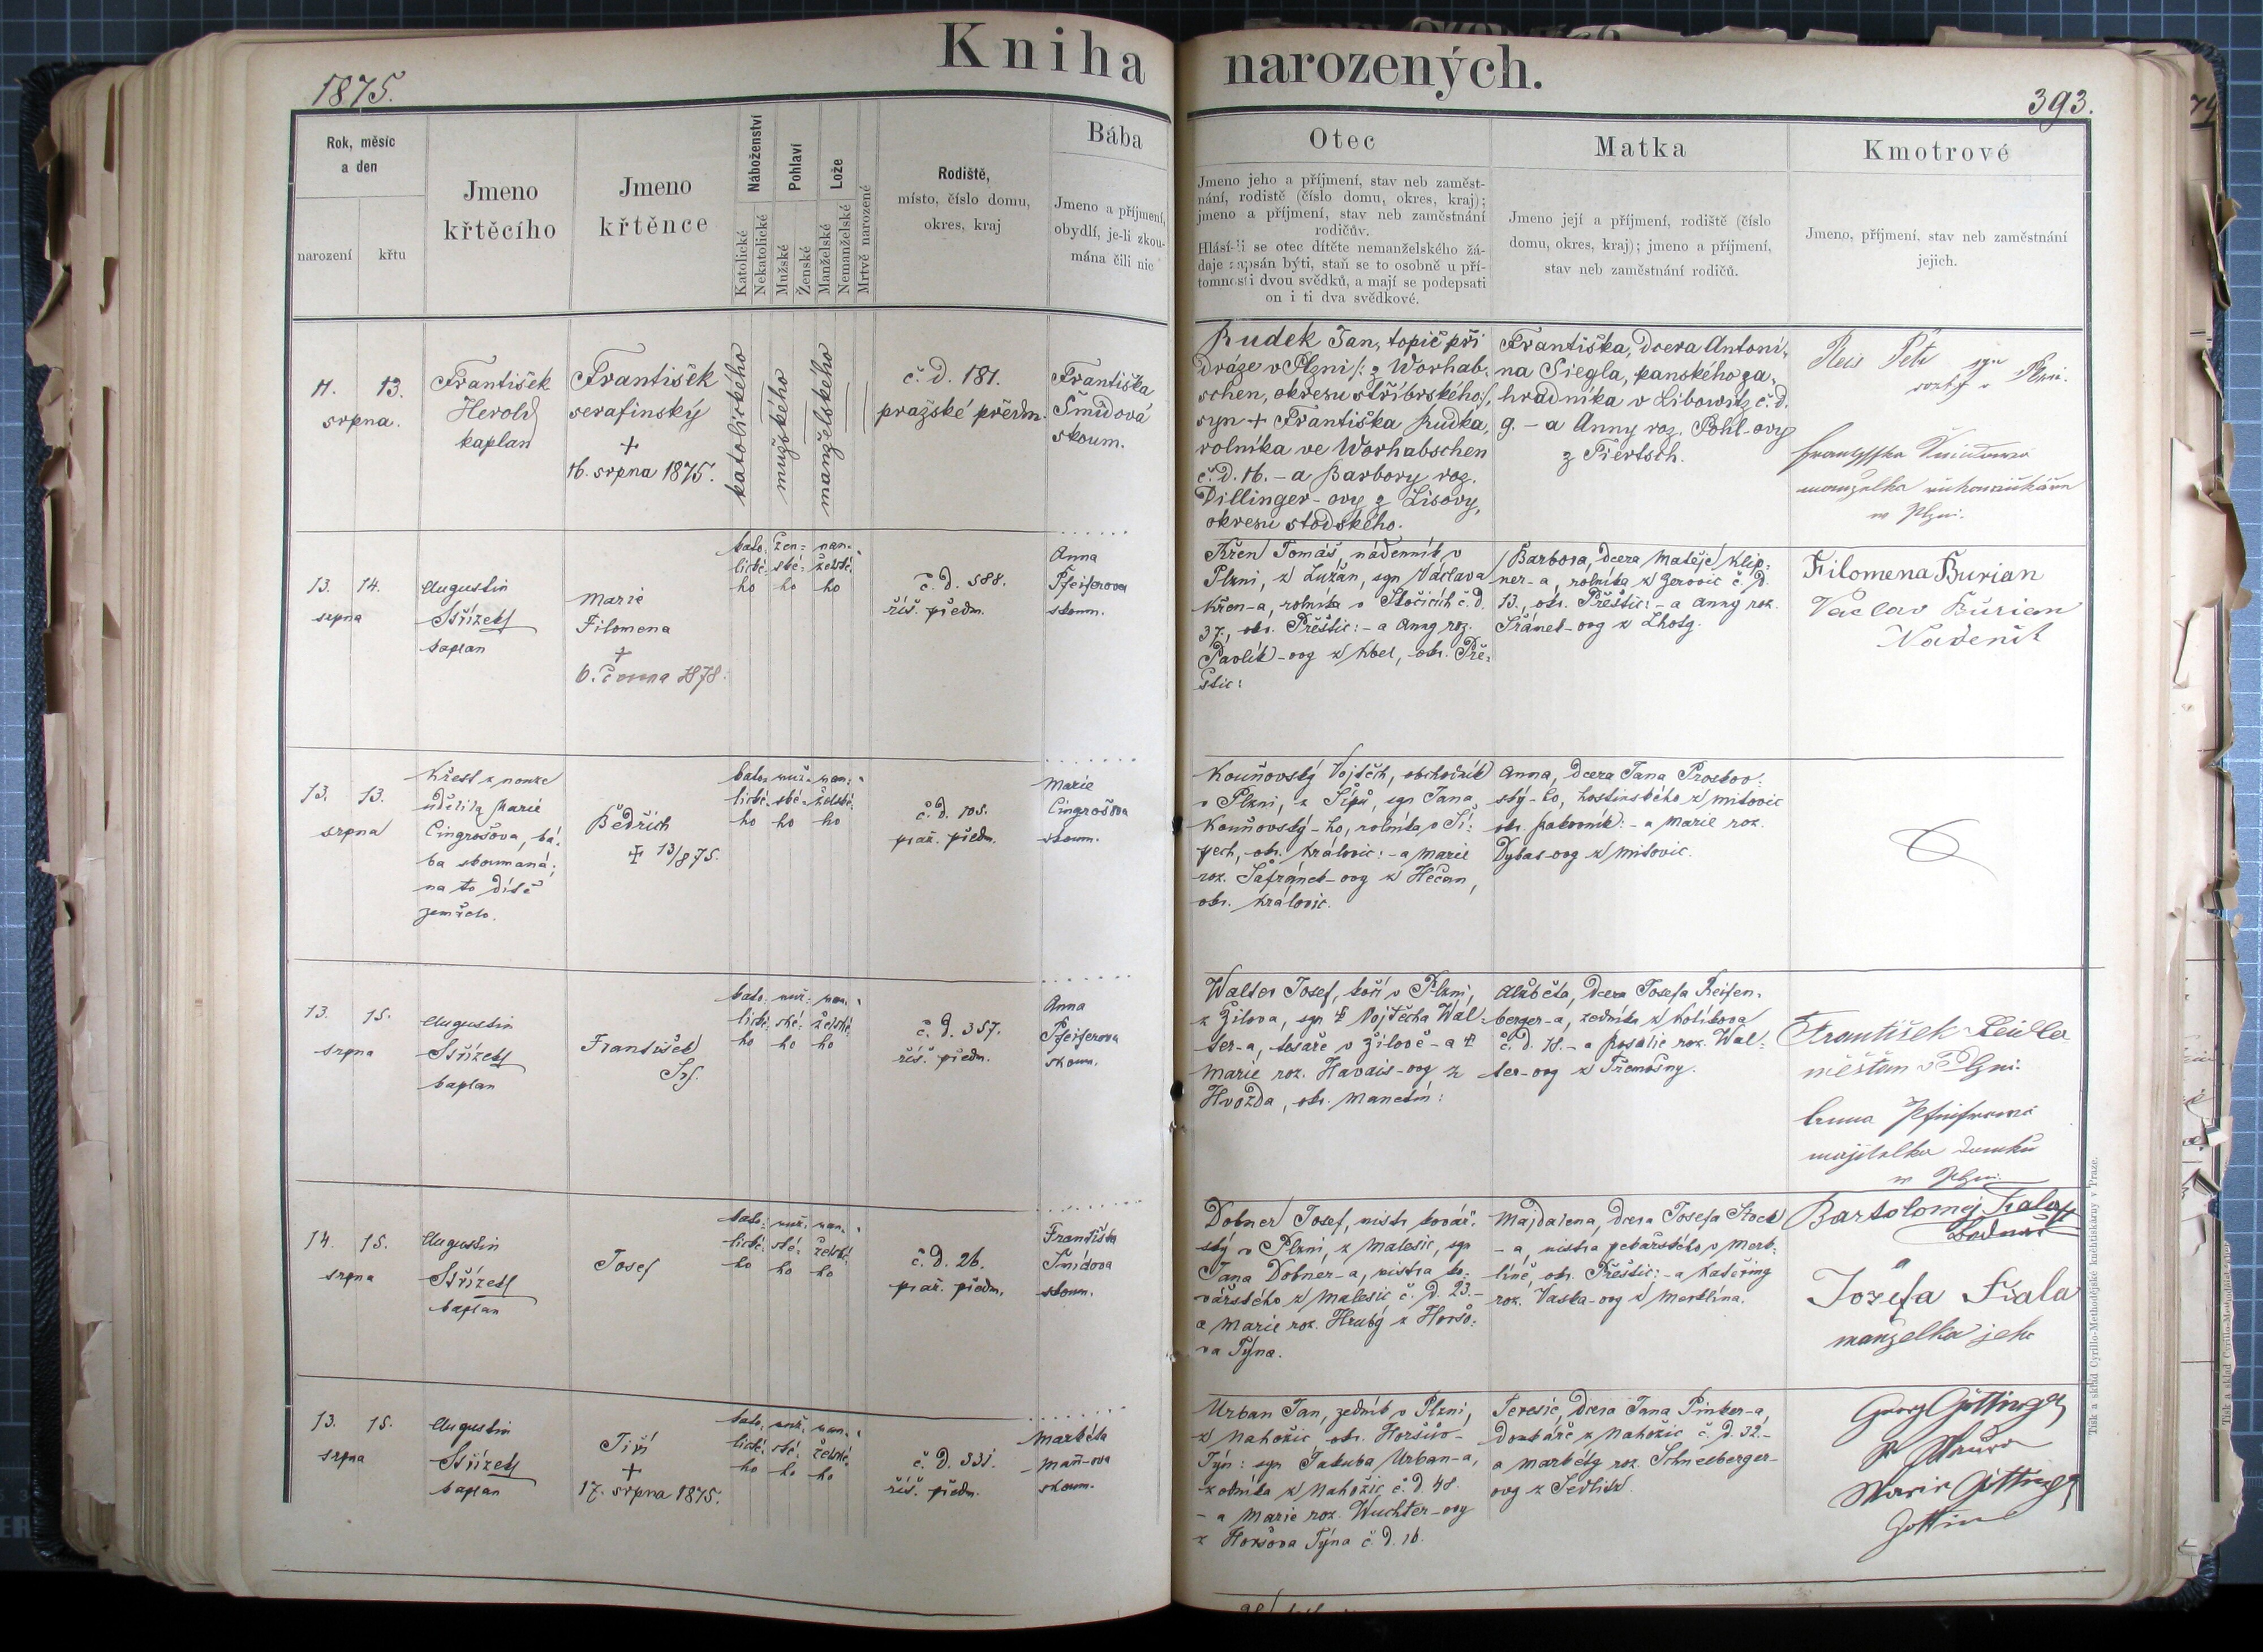 Kniha narozených.
1875.
393.
Rok, měsíc
a den
narození
křtu
Jmeno
křtěcího
Jmeno
křtěnce
Náboženství
Katolické
Nekatolické
Pohlaví
Mužské
Ženské
Lože
Manželské
Nemanželské
Mrtvě narozené
Rodiště,
místo, číslo domu,
okres, kraj
Bába
Jmeno a příjmení,
obydlí, je-li zkou-
mána čili nic
Otec
Jmeno jeho a příjmení, stav neb zaměst-
nání, rodiště (číslo domu, okres, kraj);
jmeno a příjmení, stav neb zaměstnání
rodičův.
Hlásí-li se otec dítěte nemanželského žá-
daje zapsán býti, staň se to osobně u pří-
tomnosti dvou svědků, a mají se podepsati
on i ti dva svědkové.
Matka
Jmeno její a příjmení, rodiště (číslo
domu, okres, kraj); jmeno a příjmení,
stav neb zaměstnání rodičů.
Kmotrové
Jmeno, příjmení, stav neb zaměstnání
jejich.
11. 13.
srpna.
František
Herold
kaplan
František
serafinský
+
16. srpna 1875.
katolického
mužského
manželského
č. d. 181.
pražské předm.
Františka
Šmídová
skoum.
Rudek Jan, topič při
dráze v Plzni /: z Worhab-
schen, okresu stříbrského :/,
syn + Františka Rudka,
rolníka ve Worhabschen
č. d. 16. - a Barbory roz.
Dillinger-ovy z Lisovy,
okresu stodského.
Františka, dcera Antoní-
na Siegla, panského za-
hradníka v Libowitz č. d.
9. - a Anny roz. Pohl-ovy
z Tiertsch.
Reis Petr
Plzni.
manželka
w Plzni.
13. 14.
srpna
Augustin
Střízek
kaplan
Marie
Filomena
+
6. června 1878.
kato- žen- man-
lické- ské- želské-
ho ho ho
č. d. 588.
říš. předm.
Anna
Pfeiferova
skoum.
Křen Tomáš, nádenník v
Plzni, z Lužan, syn Václava
Křen-a, rolníka v Stočicích č. d.
37., okr. Přeštic: - a Anny roz.
Pavlík-ovy z Kbel, okr. Pře-
štic:
Barbora, dcera Matěje Klip-
ner-a, rolníka z Jerovic č. d.
13., okr. Přeštic: - a Anny roz.
Šrámek-ovy z Lhoty.
Filomena Burian
Václav Burian
Nadeník
13. 13.
srpna
Křest z nouze
udělila Marie
Cingrošova, bá-
ba skoumaná;
na to dítě
zemřelo.
Bedřich
+ 13/8 75.
kato- muž- man-
lické- ské- želské-
ho ho ho
č. d. 105.
praž. předm.
Marie
Cingrošova
skoum.
Kouňovský Vojtěch, obchodník
v Plzni, z Sípů, syn Jana
Kouňovský-ho, rolníka v Sí-
pech, okr. Královic: - a Marie
roz. Šafránek-ovy z Hěčan,
okr. Královic.
Anna, dcera Jana Proskov-
ský-ho, hostinského z Milovic
okr. Rakovník: - a Marie roz.
Dybas-ovy z Milovic.
13. 15.
srpna
Augustin
Střízek
kaplan
František
Srf.
kato- muž- man-
lické- ské- želské-
ho ho ho
č. d. 357.
říš. předm.
Anna
Pfeiferova
skoum.
Walter Josef, kočí v Plzni,
z Žilova, syn + Vojtěcha Wal-
ter-a, tesaře v Žilově - a +
Marie roz. Havais-ovy z
Hvozda, okr. Manetín:
Alžběta, dcera Josefa Reifen-
berger-a, zedníka z Kotíkova
č. d. 18. - a Rosalie roz. Wal-
ter-ovy z Třemošny.
František
měšťan v Plzni
Anna Pfeifrowá
majitelka domku
w Plzni.
14. 15.
srpna
Augustin
Střízek
kaplan
Josef
kato- muž- man-
lické- ské- želské-
ho ho ho
č. d. 26.
praž. předm.
Františka
Šmídova
skoum.
Dobner Josef, mistr kovář-
ský v Plzni, z Malesic, syn
Jana Dobner-a, mistra ko-
vářského z Malesic č. d. 23. -
a Marie roz. Hrubý z Horšo-
va Týna.
Majdalena, dcera Josefa Stock
-a, mistra pekařského v Merk-
líně, okr. Přeštic: - a Kateřiny
roz. Vaska-ovy z Merklína.
Bartolomej Fiala
Bednář
a
Josefa Fiala
manželka jeho
13. 15.
srpna
Augustin
Střízek
kaplan
Jiří
+
17. srpna 1875.
kato- muž- man-
lické- ské- želské-
ho ho ho
č. d. 331.
říš. předm.
Markéta
Maň-ova
skoum.
Urban Jan, zedník v Plzni,
z Nahožic okr. Horšův-
Týn: syn Jakuba Urban-a,
rolníka z Nahožic č. d. 48.
- a Marie roz. Wuchter-ovy
z Horšova Týna č. d. 16.
Teresie, dcera Jana Pinker-a,
domkáře z Nahožic č. d. 32. -
a Markéty roz. Schneeberger-
ovy z Sedlišť.
Georg Göttinger
Marie Göttinger
Tisk a sklad Cyrillo-Methodějské knihtiskárny v Praze.